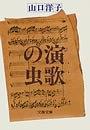 山口洋子
演歌
の虫
文春文庫